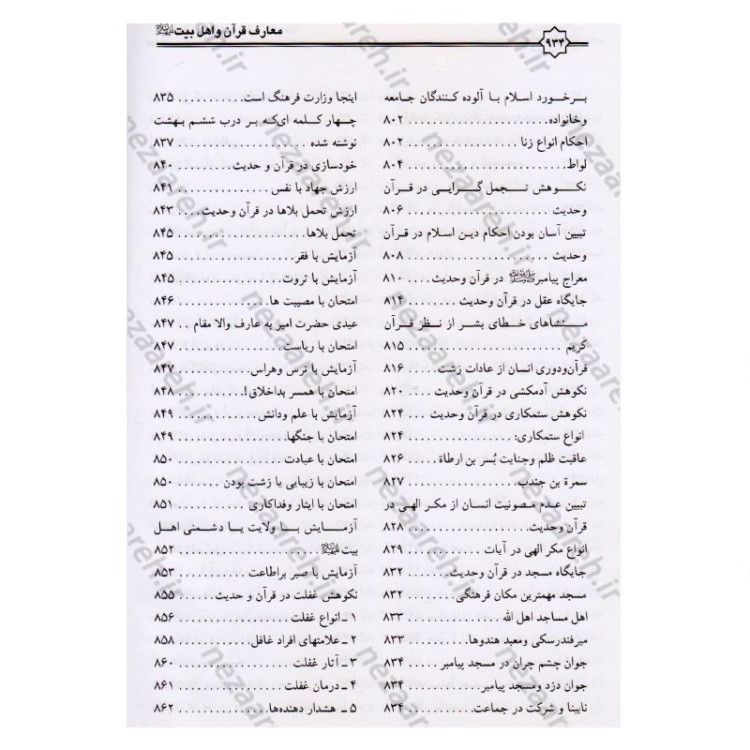 معارف قرآن و اهل بیت
۹۳۴
بـرخـورد اسـلام بـا آلوده کـنـنـدگان جـامعه
وخانواده ............................ ۸۰۲
احکام انواع زنا ...................... ۸۰۲
لواط ................................ ۸۰۴
نکـوهش تـجمل گـرایـی در قـرآن
وحدیث .............................. ۸۰۶
تبیین آسان بودن احکام دیـن اسـلام در قـرآن
وحدیث .............................. ۸۰۸
معراج پیامبر در قرآن وحدیث .... ۸۱۰
جایگاه عقل در قرآن وحدیث ....... ۸۱۴
مـنـشاهای خـطای بـشر از نـظر قـرآن
کریم ................................ ۸۱۵
قرآن‌ودوری انسان از عادات زشت . ۸۱۶
نکوهش آدمکشی در قرآن وحدیث .. ۸۲۰
نکوهش ستمکاری در قرآن وحدیث ... ۸۲۴
انواع ستمکاری: ...................... ۸۲۴
عاقبت ظلم وجنایت بُسر بن ارطاة .. ۸۲۶
سمرة بن جندب ....................... ۸۲۷
تبیین عـدم مـصونیت انسـان از مکـر الهـی در
قرآن وحدیث .......................... ۸۲۸
انواع مکر الهی در آیات .............. ۸۲۹
جایگاه مسجد در قرآن وحدیث ....... ۸۳۲
مسجد مهمترین مکان فرهنگی ......... ۸۳۲
اهل مساجد اهل الله .................. ۸۳۳
میرفندرسکی ومعبد هندوها ........... ۸۳۳
جوان چشم چران در مسجد پیامبر .... ۸۳۴
جوان دزد ومسجد پیامبر .............. ۸۳۴
نابینا و شرکت در جماعت .............. ۸۳۴
اینجا وزارت فرهنگ است ............. ۸۳۵
چـهار کـلمه ای‌کـه بـر درب ششـم بـهشت
نوشته شده .......................... ۸۳۷
خودسازی در قرآن و حدیث ......... ۸۴۰
ارزش جهاد با نفس .................. ۸۴۱
ارزش تحمل بلاها در قرآن وحدیث .... ۸۴۳
تحمل بلاها .......................... ۸۴۵
آزمایش با فقر ....................... ۸۴۵
آزمایش با ثروت ...................... ۸۴۵
امتحان با مصیبت ها .................. ۸۴۶
عیدی حضرت امیر به عارف والا مقام .. ۸۴۷
امتحان با ریاست ..................... ۸۴۷
آزمایش با ترس وهراس ............... ۸۴۷
امتحان با همسر بداخلاق! ............. ۸۴۸
آزمایش با علم ودانش ................. ۸۴۹
امتحان با جنگها ...................... ۸۴۹
امتحان با عبادت ...................... ۸۵۰
امتحان با زیبایی یا زشت بودن ....... ۸۵۰
امتحان با ایثار وفداکاری ............. ۸۵۱
آزمـایش بـا ولایت یـا دشـمنی اهـل
بیت ................................ ۸۵۲
آزمایش با صبر براطاعت .............. ۸۵۳
نکوهش غفلت در قرآن و حدیث ....... ۸۵۵
۱ ـ انواع غفلت ....................... ۸۵۶
۲ ـ علامتهای افراد غافل .............. ۸۵۸
۳ ـ آثار غفلت ........................ ۸۶۰
۴ ـ درمان غفلت ...................... ۸۶۱
۵ ـ هشدار دهنده‌ها ................... ۸۶۲
nezaareh.ir